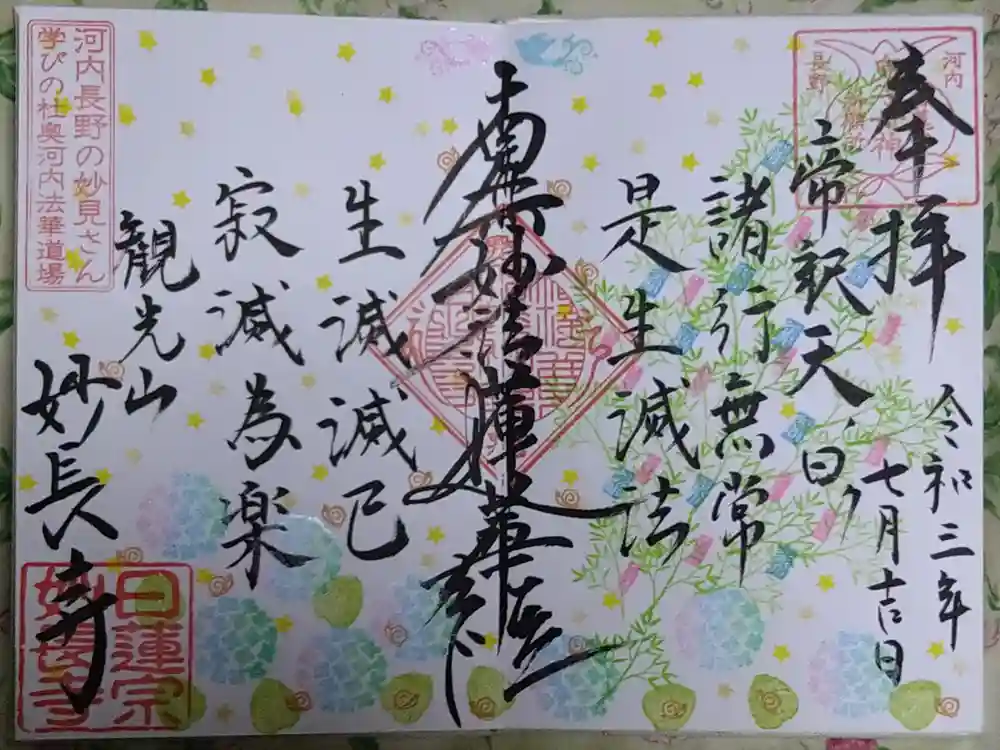 奉拝
令和三年
七月吉日
帝釈天
諸行無常
是生滅法
南無妙法蓮華経
生滅滅已
寂滅為楽
観光山
妙長寺
河内長野の妙見さん
学びの杜奥河内法華道場
河内
長野
日蓮宗
妙長寺